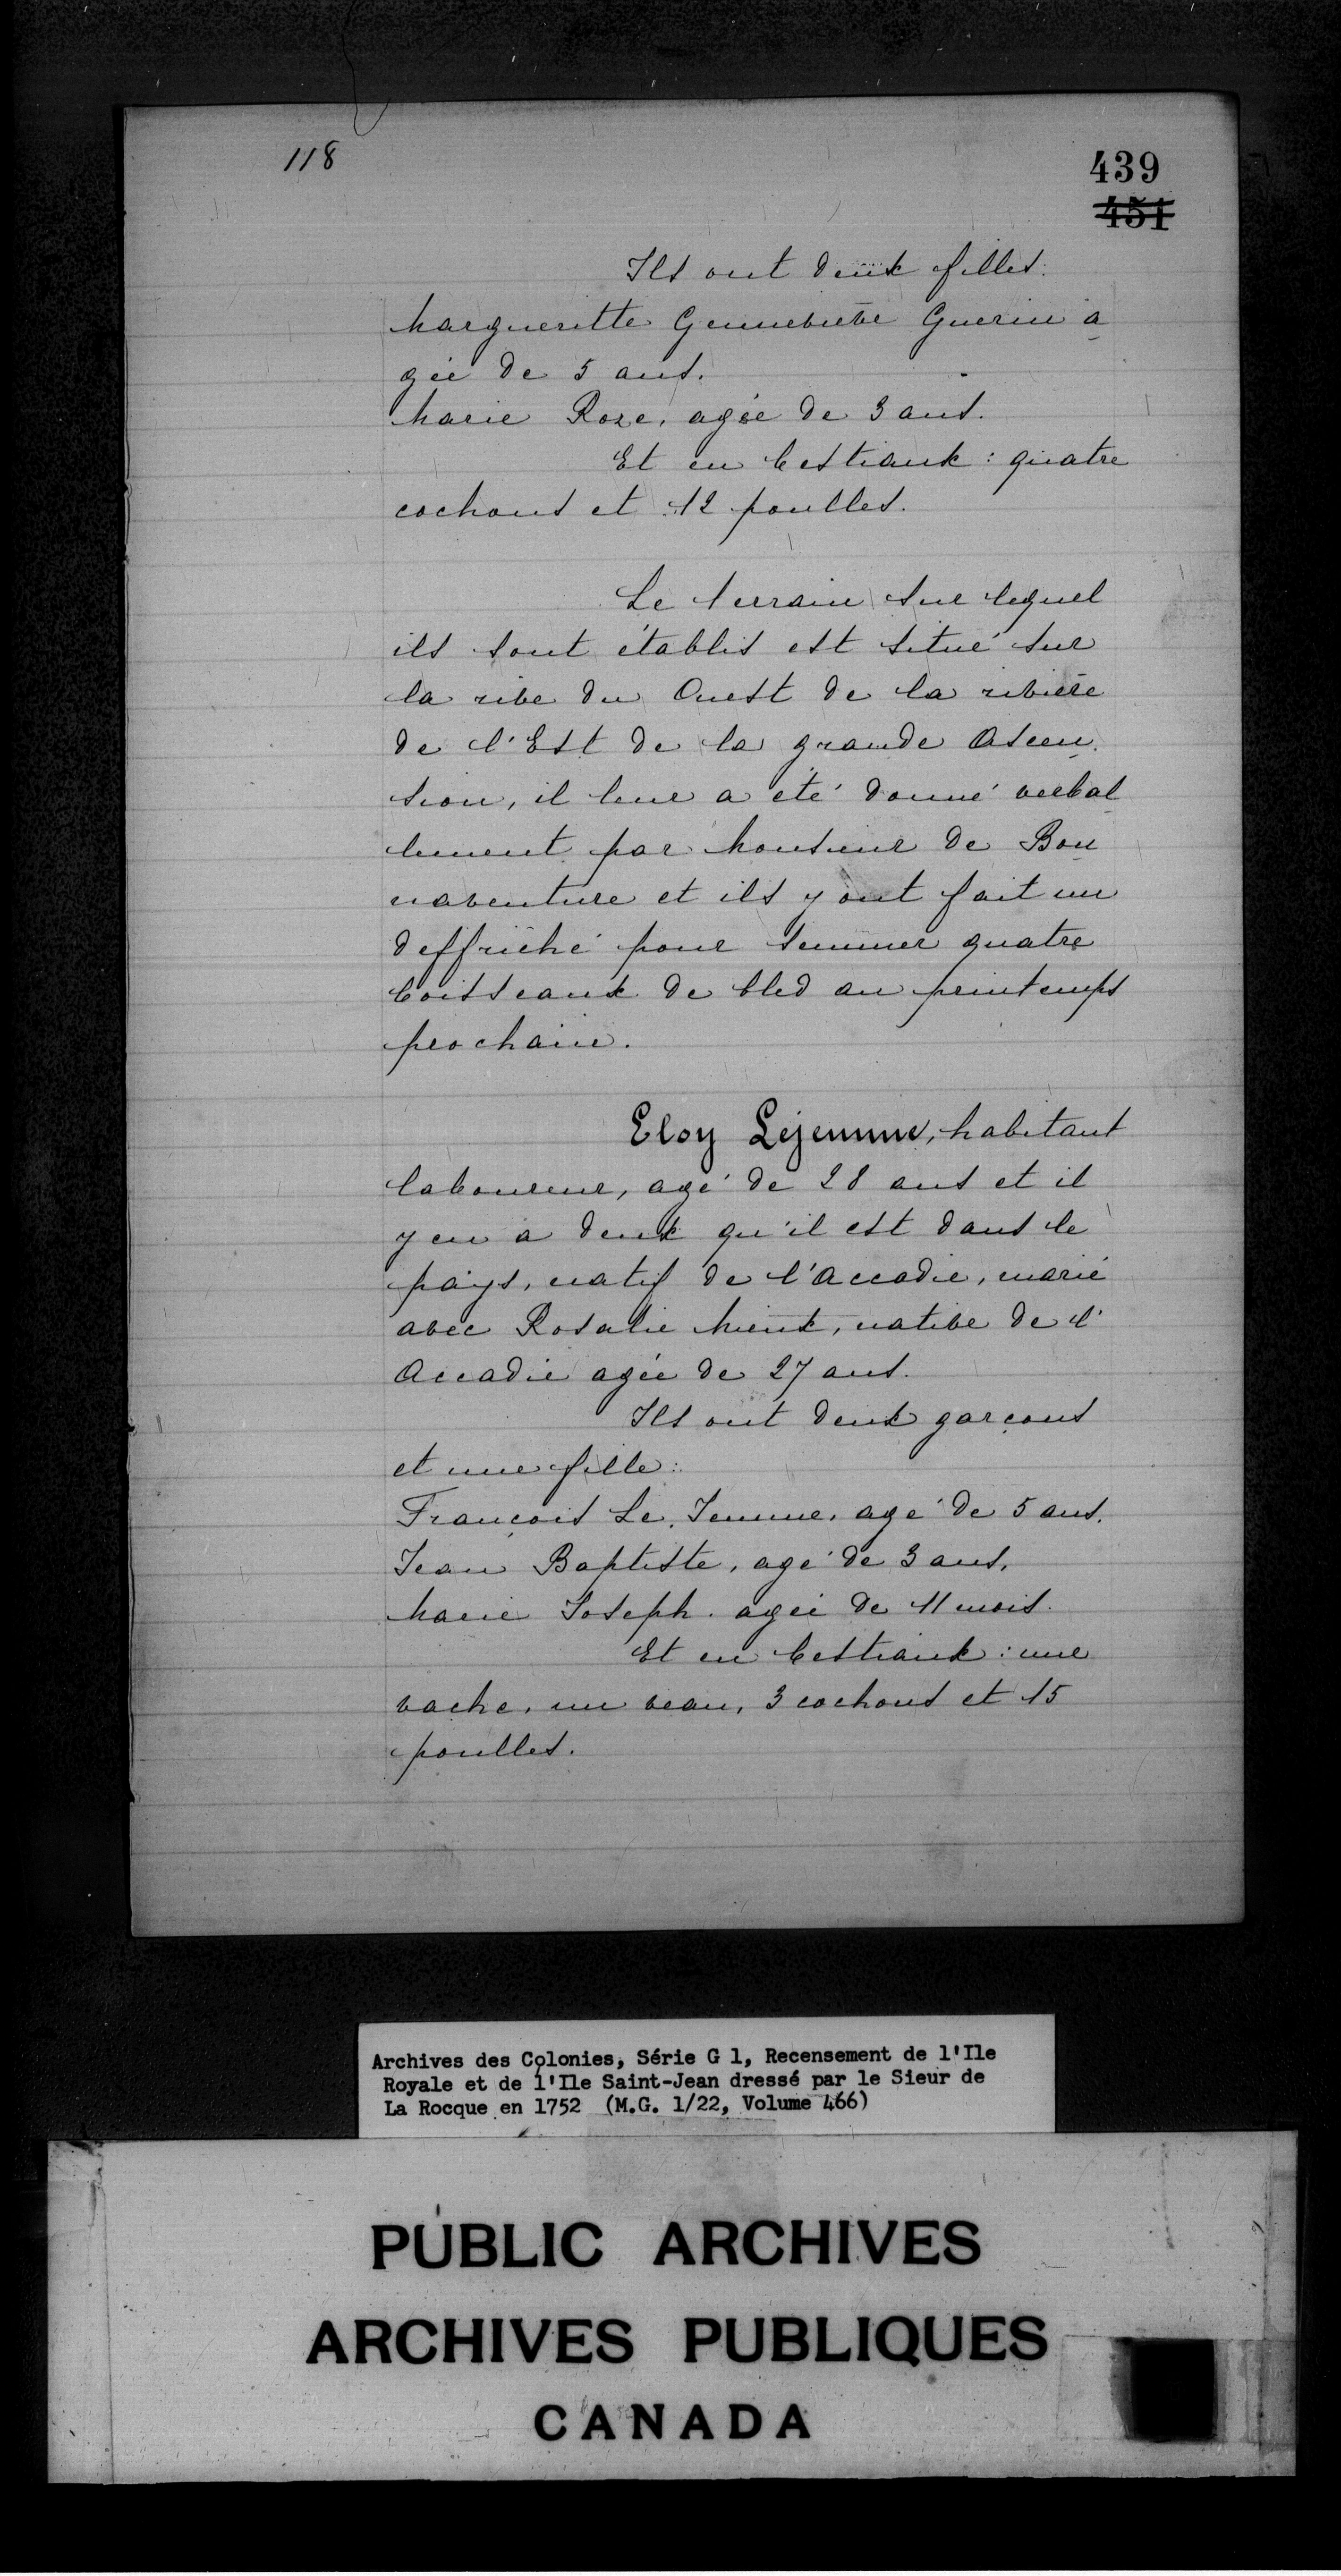 118
439
451
Ils ont deux filles.
Margueritte Gennevieve Guerin a
gée de 5 ans.
Marie Roze, agée de 3 ans.
Et en bestiaux : quatre
cochons et 12 poulles.
Le terrain sur lequel
ils sont établis est situé sur
la rive du Ouest de la riviere
de l'Est de la grande Ascen
sion, il leur a été donné verbal
lement par Monsieur de Bon
naventure et ils y ont fait un
deffriché pour semmer quatre
boisseaux de bled au printemps
prochain.
Eloy Lejeunne, habitant
laboureur, agé de 28 ans et il
y en a deux qu'il est dans le
pays, natif de l'Accadie, marié
avec Rosalie Mieux, native de l'
Accadie agée de 27 ans.
Ils ont deux garçons
et une fille :
François Le Jeunne, agé de 5 ans.
Jean Baptiste, agé de 3 ans,
Marie Joseph. agée de 11 mois.
Et en bestiaux : une
vache, un veau, 3 cochons et 15
poulles.
Archives des Colonies, Série G 1, Recensement de l'Ile
Royale et de l'Ile Saint-Jean dressé par le Sieur de
La Rocque en 1752 (M.G. 1/22, Volume 466)
PUBLIC ARCHIVES
ARCHIVES PUBLIQUES
CANADA